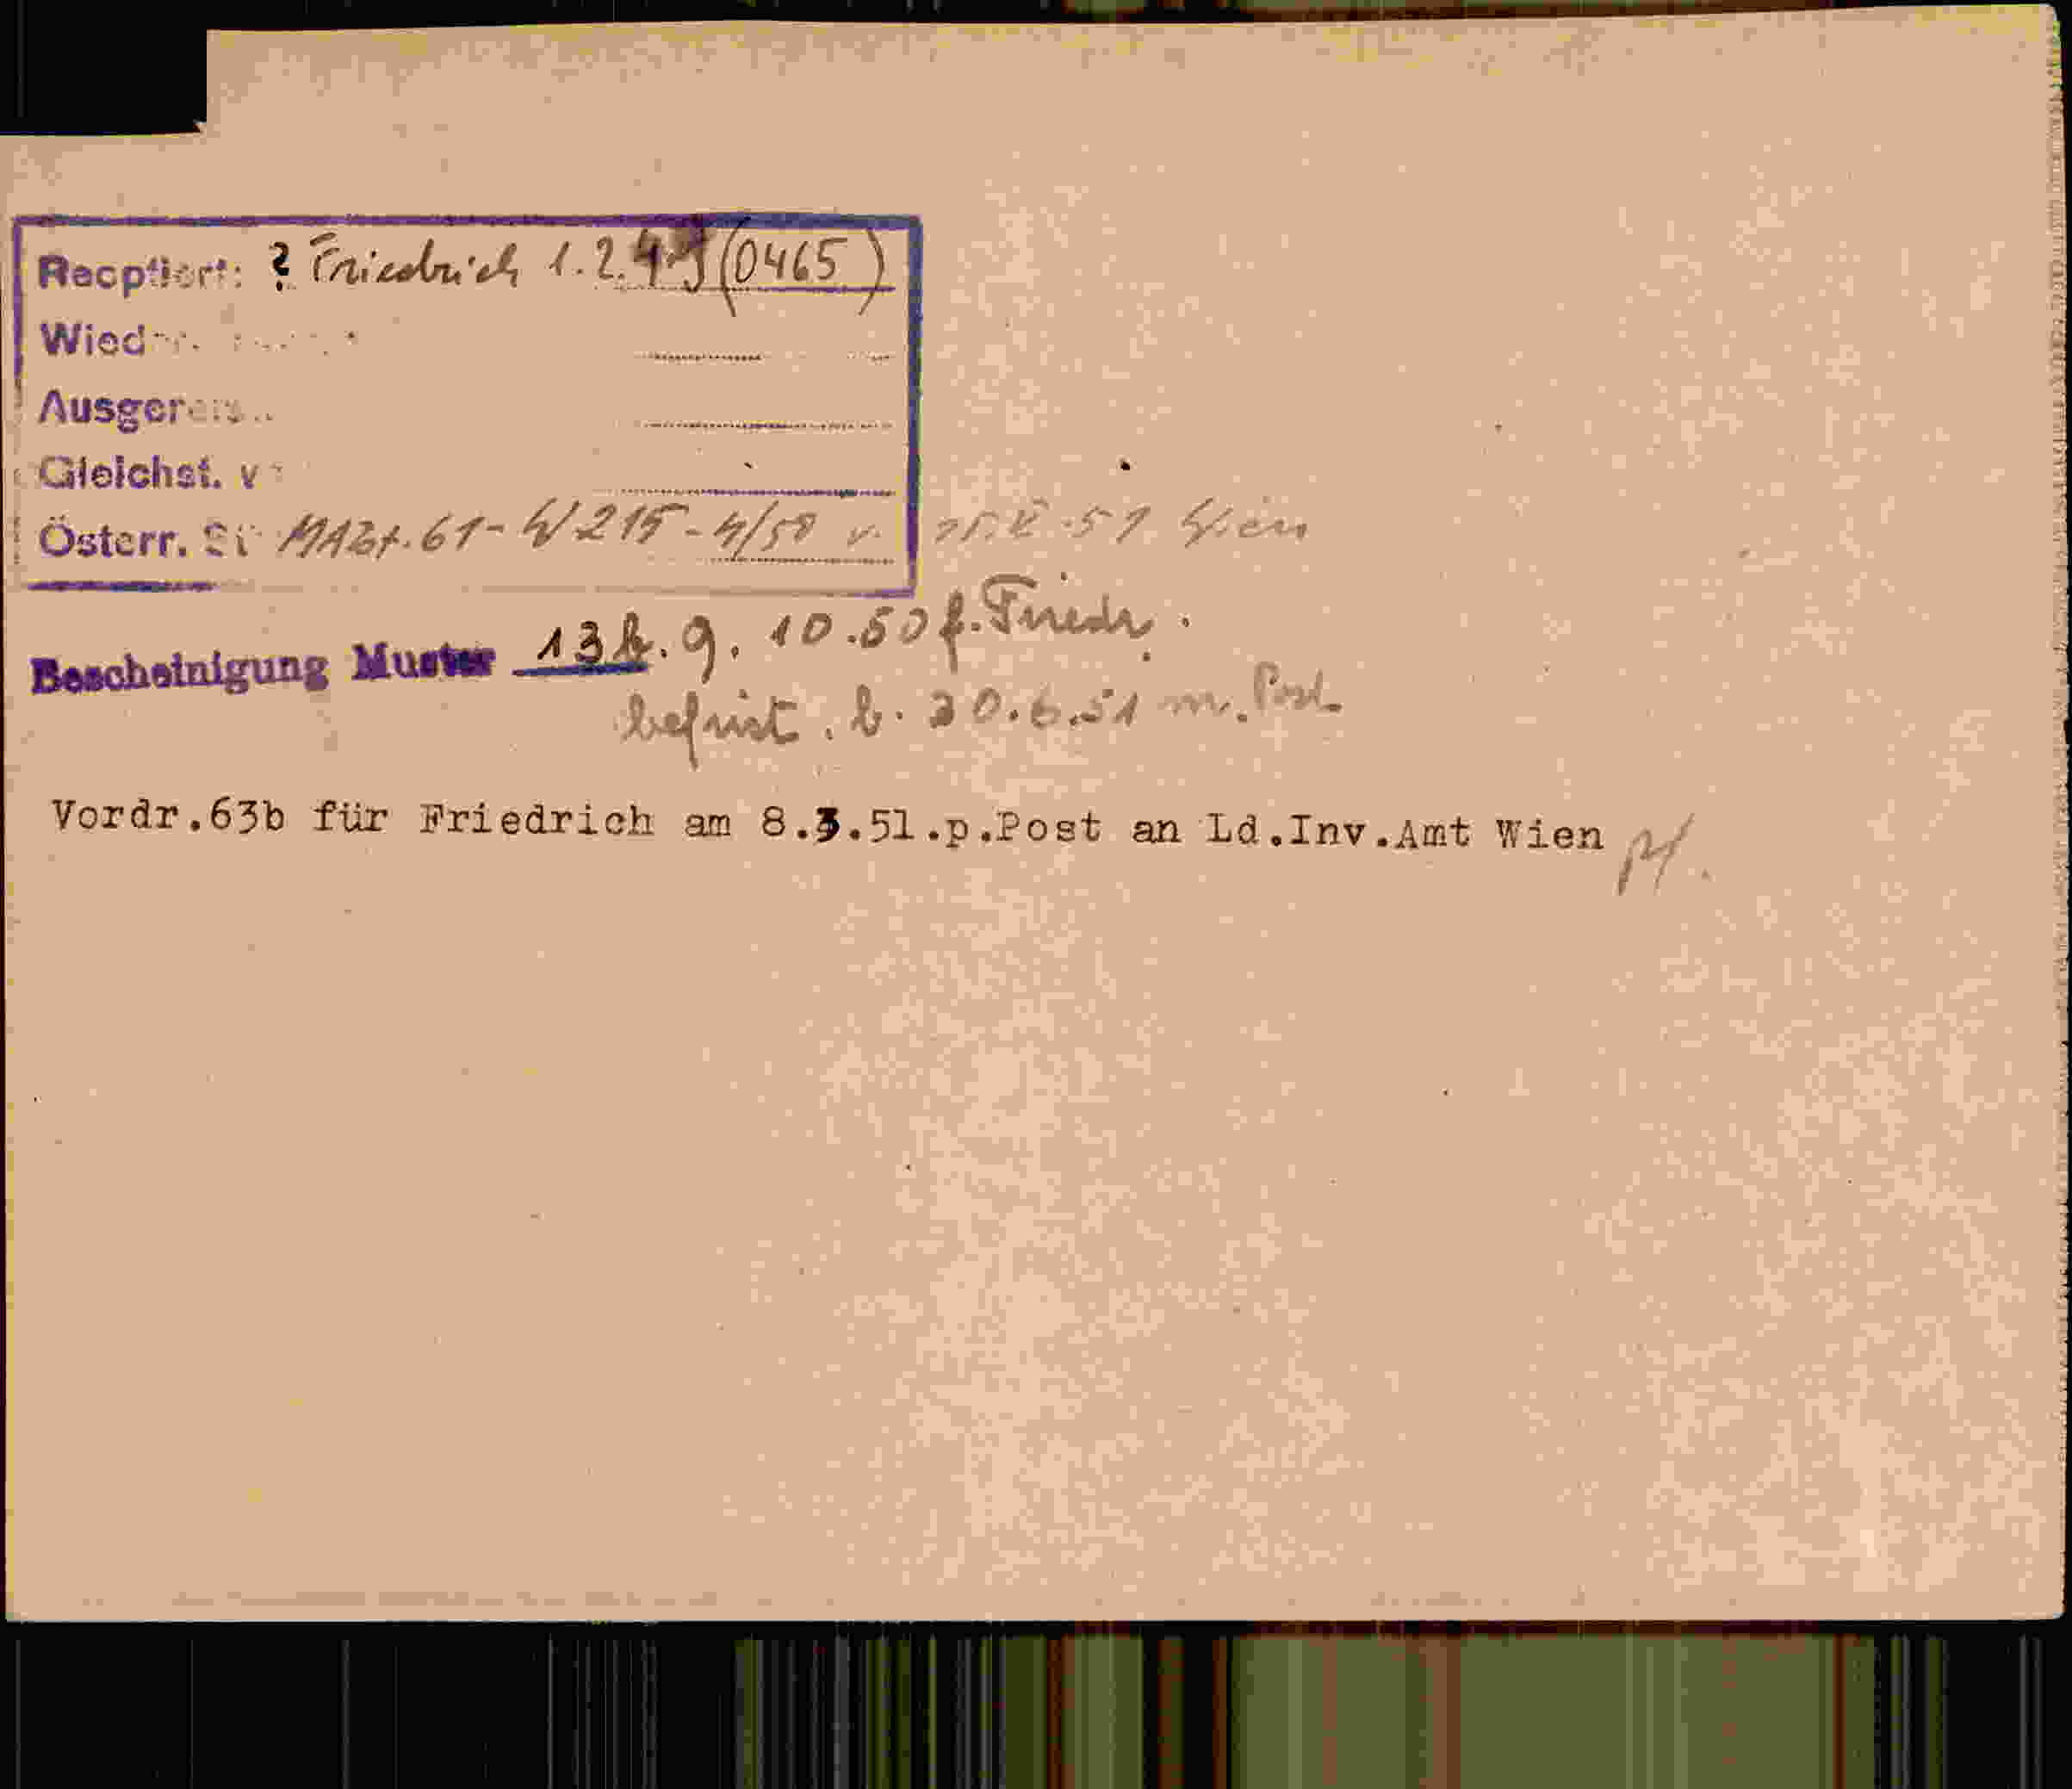 Recptiert: ? Friedrich 1.2. (0465)
Wied
Ausger
Gleichst. v
Österr. St MAbt. 61- W 215 - 4/50 v. 51 Wien
Bescheinigung Muster 13b. 9. 10.50 f. Friedr.
befrist. b. 30.6.51 m. Post
Vordr.63b für Friedrich am 8.3.51.p.Post an Ld.Inv.Amt Wien